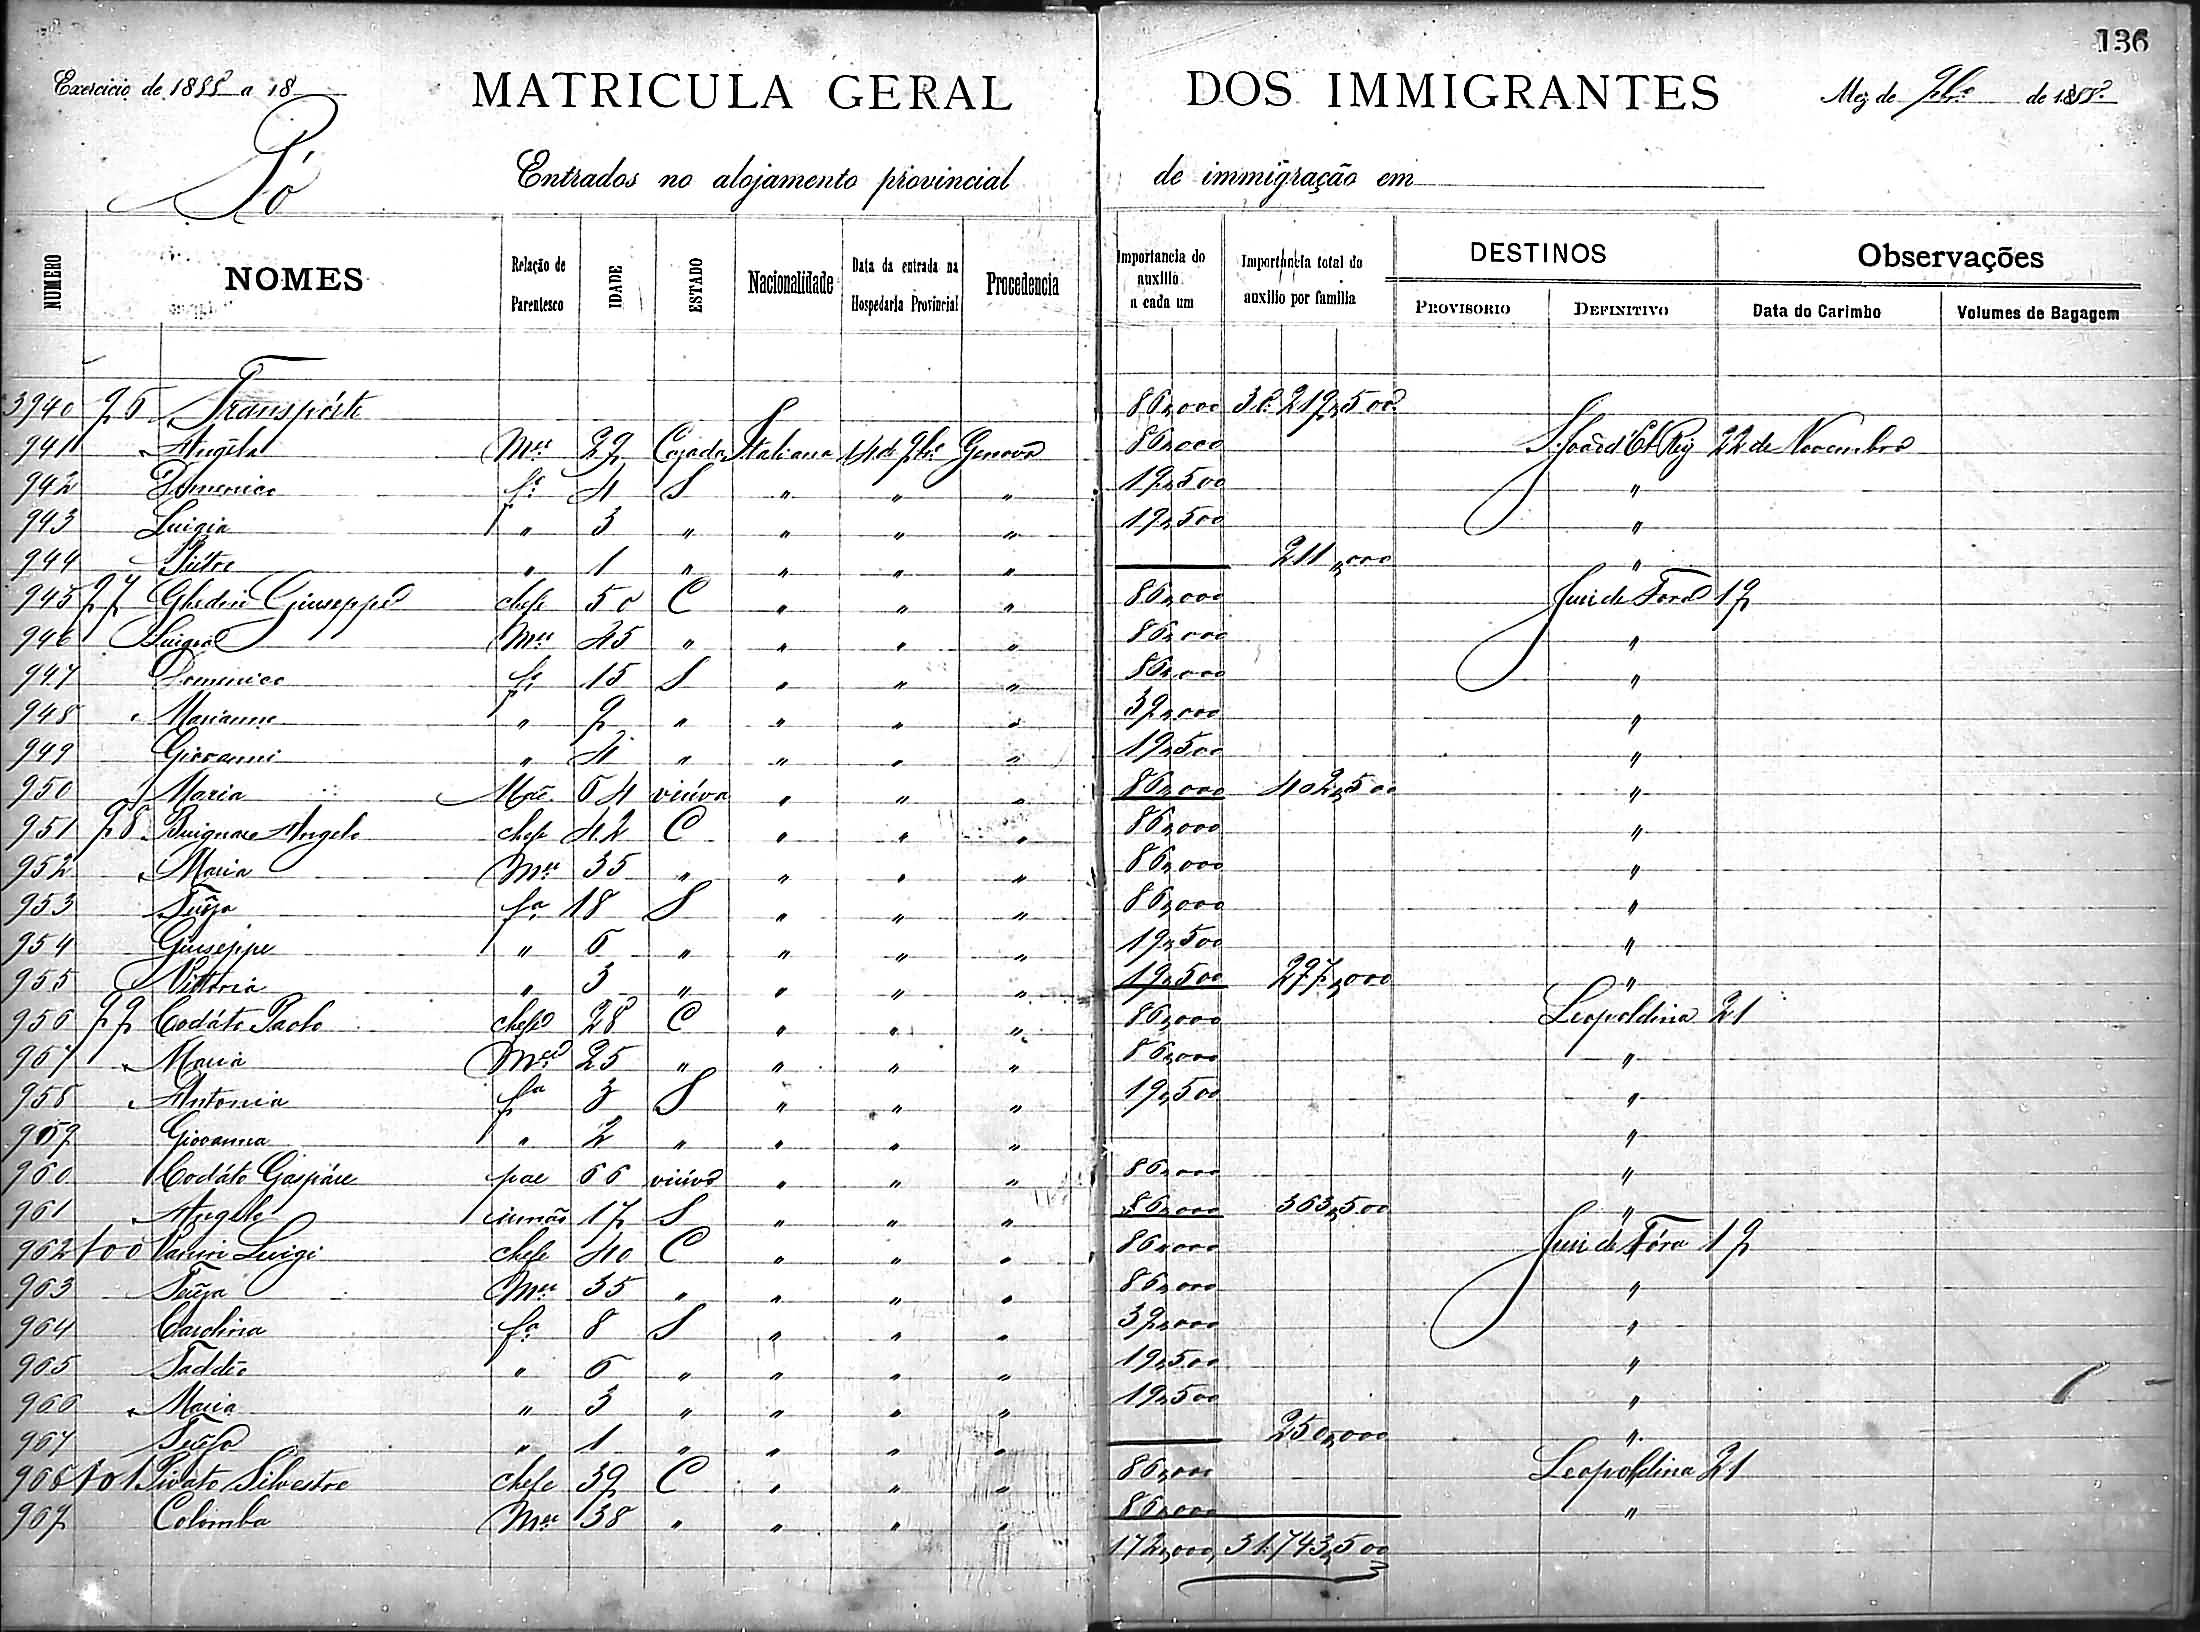 136
Exercicio de 1888 a 18
MATRICULA GERAL DOS IMMIGRANTES
Mez de 9bro de 1888
Pó
Entrados no alojamento provincial de immigração em
NUMERO NOMES Relação de Parentesco IDADE ESTADO Nacionalidade Data da entrada na Hospedaria Provincial Procedencia Importancia do auxilio a cada um Importancia total do auxilio por familia DESTINOS PROVISORIO DEFINITIVO Observações Data do Carimbo Volumes de Bagagem
3940 96 Transpórte 86,000 31.219,500
941 Angela Mer 29 Cazada Italiana 14 de 9bro Genova 86,000 S. João d'El-Rey 22 de Novembro
942 Domenico fo 4 S " " " 19,500 "
943 Luigia " 3 " " " " 19,500 "
944 Piétro " 1 " " " " 211,000 "
945 97 Ghedin Giuseppe chefe 50 C " " " 86,000 Juiz de Fora 19
946 Luigia Mer 45 " " " " 86,000 "
947 Domenico fo 15 S " " " 86,000 "
948 Marianna " 9 " " " " 39,000 "
949 Giovanni " 4 " " " " 19,500 "
950 Maria Mãe 64 viúva " " " 86,000 402,500 "
951 98 Angelo chefe 42 C " " " 86,000 "
952 Maria Mer 35 " " " " 86,000 "
953 fa 18 S " " " 86,000 "
954 Giuseppe " 6 " " " " 19,500 "
955 Vittoria " 3 " " " " 19,500 297,000 "
956 99 Codáto Paolo chefe 28 C " " " 86,000 Leopoldina 21
957 Maria Mer 25 " " " " 86,000 "
958 Antonia fa 3 S " " " 19,500 "
959 Giovanna " 2 " " " " "
960 Codáto Gaspáre pae 66 viúvo " " " 86,000 "
961 Angelo irmão 17 S " " " 86,000 363,500 "
962 100 Luigi chefe 40 C " " " 86,000 Juiz de Fóra 19
963 Mer 35 " " " " 86,000 "
964 Carolina fa 8 S " " " 39,000 "
965 Taddêo " 6 " " " " 19,500 "
966 Maria " 3 " " " " 19,500 "
967 " 1 " " " " 250,000 "
968 101 Pivato Silvestro chefe 39 C " " " 86,000 Leopoldina 21
969 Colomba Mer 38 " " " " 86,000 "
172,000 31.743,500